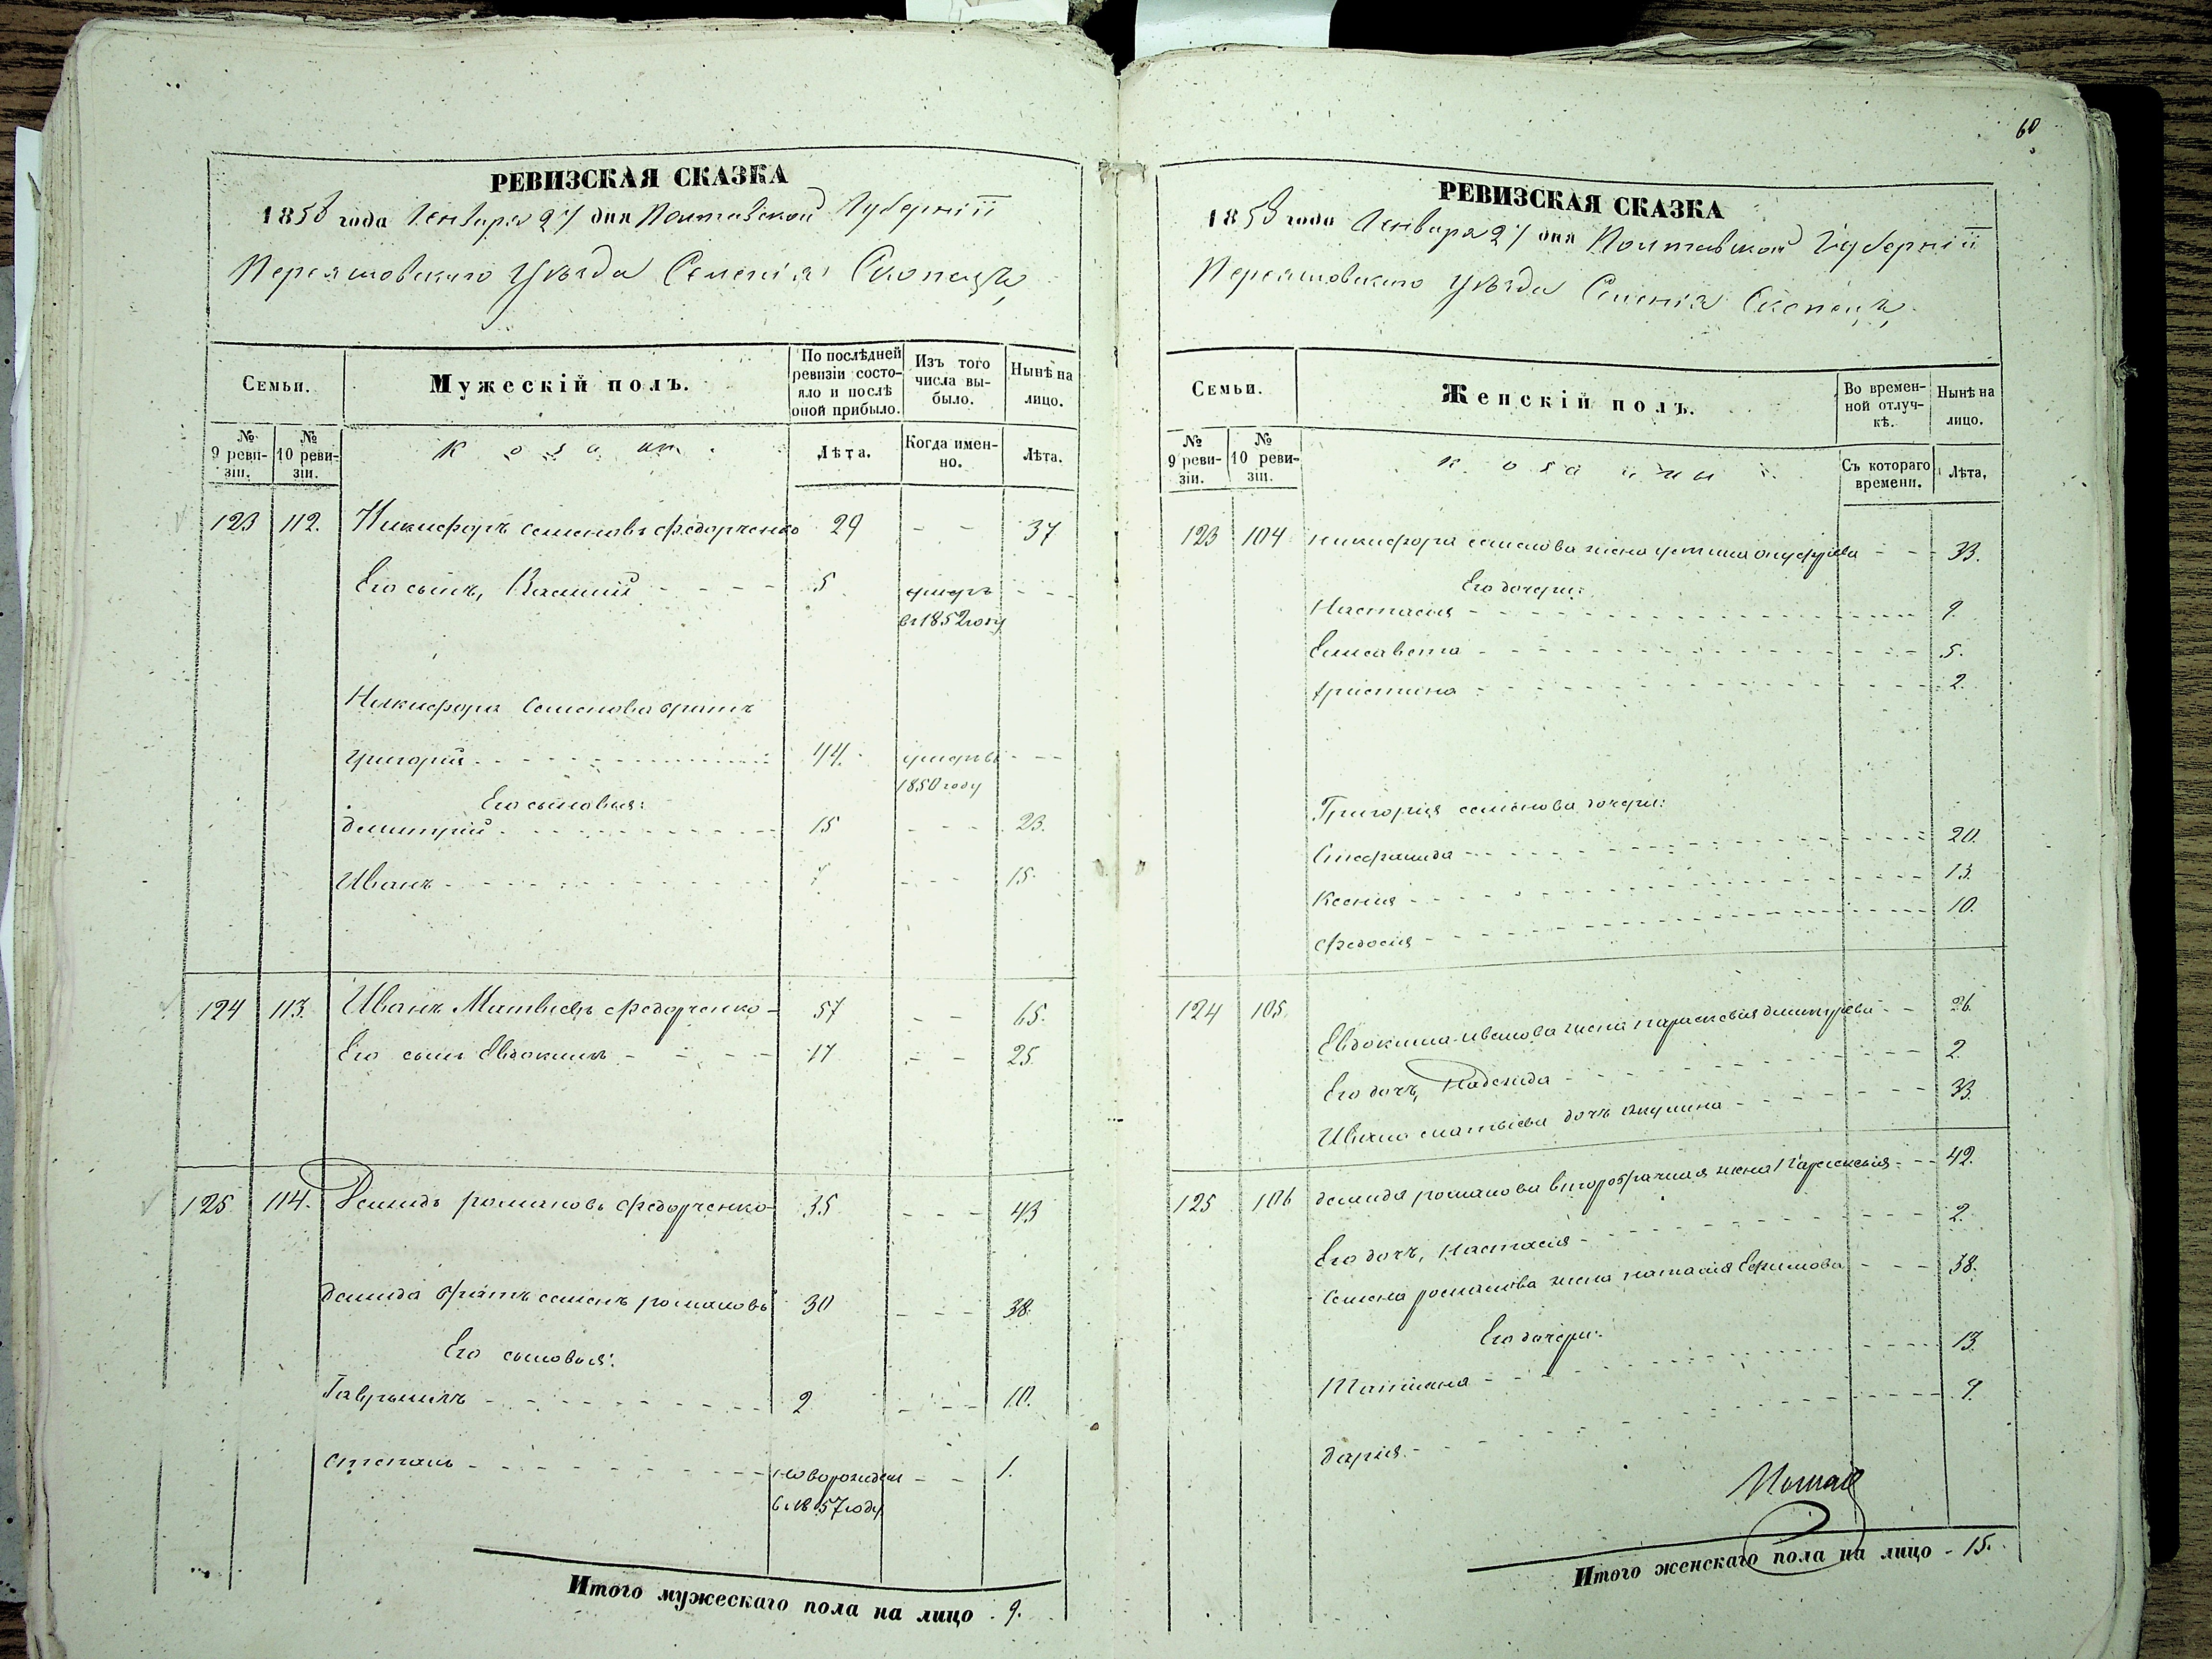 60
РЕВИЗСКАЯ СКАЗКА
1858 года Генваря 27 дня Полтавской Губернїи
Переяславского Уѣзда Селенія Скопецъ
Семьи.
Мужескій полъ.
По послѣдней ревизіи состояло и послѣ оной прибыло.
Изъ того числа выбыло.
Нынѣ на лицо.
№ 9 ревизіи.
№ 10 ревизіи.
Козаки.
Лѣта.
Когда именно.
Лѣта.
123 112. Никифоръ семеновъ Федорченко 29 - - 37
Его сынъ, Василий - - - - 5 умеръ - - -
въ 1852 году
Никифора Семенова братъ
Григорий - - - - 44. умеръ въ - - -
1850 году
Его сыновья:
Димитрий - - - - 15 - - - 23.
Иванъ - - - - 7. - - - 15.
124 113. Иванъ Матвеевъ Федорченко - 57 - - 65.
Его сынъ Евдокимъ - - - - 17 - - 25.
125 114. Демидъ романовъ Федорченко - 35 - - - 43
демида братъ семенъ романовъ 30 - - - 38.
Его сыновья:
Гаврыилъ - - - - 2 - - - 10.
степанъ - - - - новорожден - - 1.
въ 1857 году
Итого мужескаго пола на лицо . 9.
РЕВИЗСКАЯ СКАЗКА
1858 года Генваря 27 дня Полтавской Губернїи
Переяславского Уѣзда Селенія Скопецъ
Семьи.
Женскій полъ.
Во временной отлучкѣ.
Нынѣ на лицо.
№ 9 ревизіи.
№ 10 ревизіи.
Съ котораго времени.
Лѣта,
123 104 никифора семенова жена устина - - - 33.
Его дочери:
Настасия - - - - 9.
Елисавета - - - - 5.
христина - - - - 2.
Григория семенова дочери:
Стефанида - - - - 20.
Ксения - - - - 13.
Федосия - - - - 10.
124 105. Евдокима иванова жена параскевия димитриева - - 26.
Его дочъ, Надежда - - - - 2.
Ивана матвиева дочъ акулина - - - - 33.
125 106 демида романова второбрачная жена Параскевия - - 42.
Его дочъ, Настасия - - - - 2.
Семена романова жена наталия Ефимова - - - 38.
Его дочери:
Татиана - - - - 13.
дария - - - - 9.
Итого женскаго пола на лицо - 15.